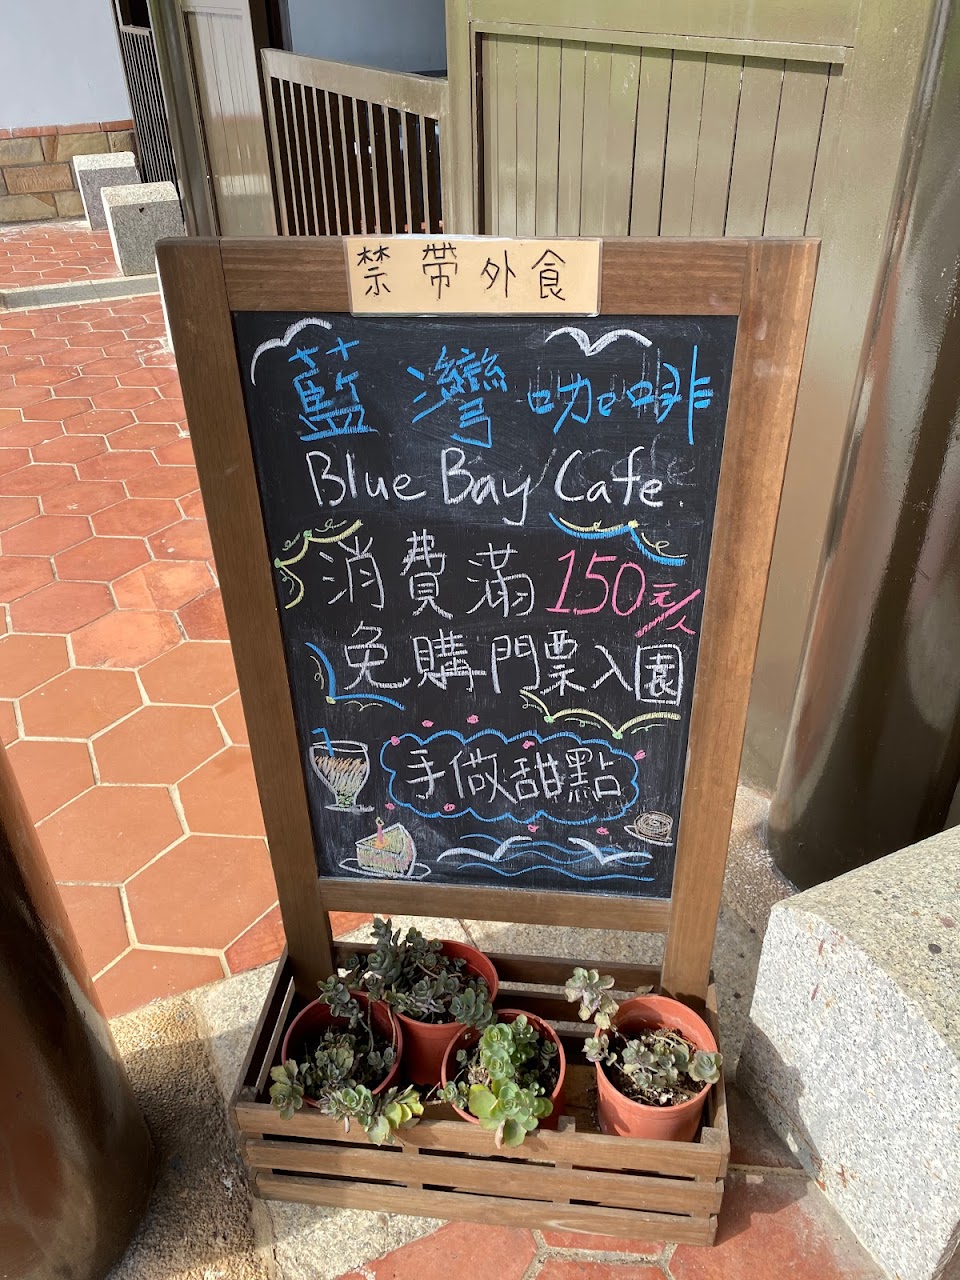 禁帶外食
藍灣咖啡
Blue Bay Cafe
消費滿150元/人
免購門票入園
手做甜點